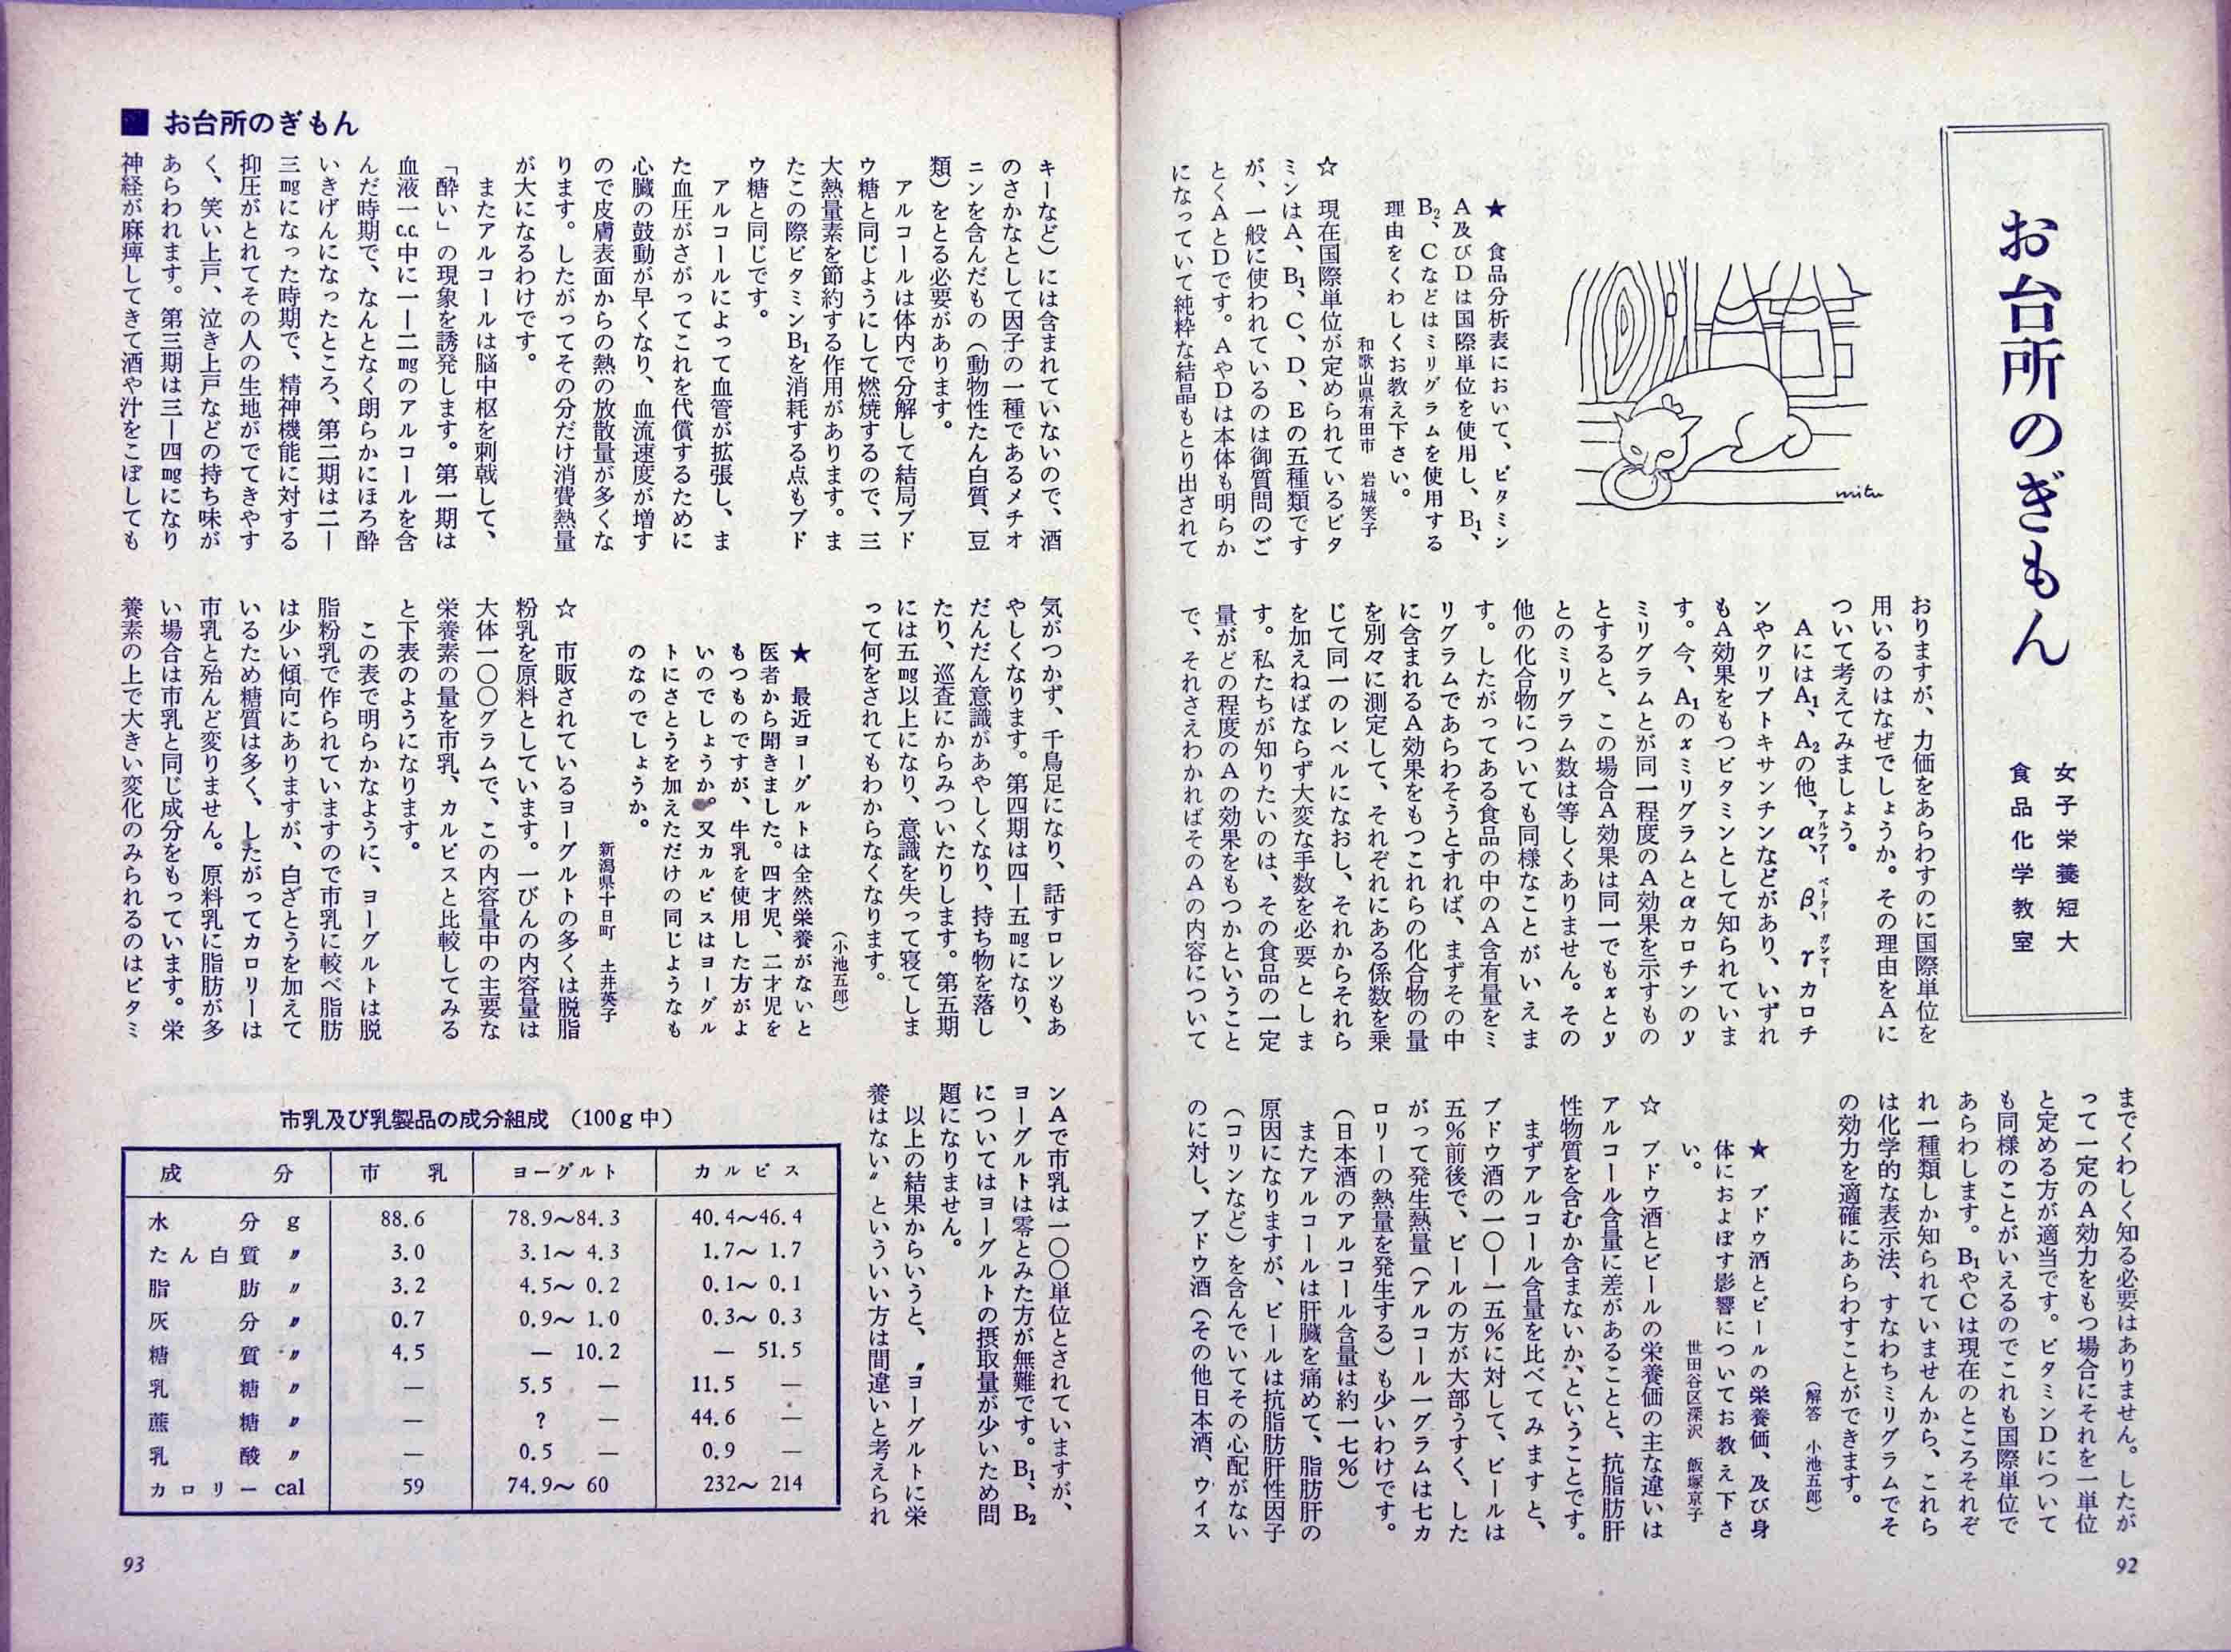 お台所のぎもん
女子栄養短大
食品化学教室
mitu
★　食品分析表において、ビタミン
A及びDは国際単位を使用し、B₁、
B₂、Cなどはミリグラムを使用する
理由をくわしくお教え下さい。
和歌山県有田市　岩城笑子
☆　現在国際単位が定められているビタ
ミンはA、B₁、C、D、Eの五種類です
が、一般に使われているのは御質問のご
とくAとDです。AやDは本体も明らか
になっていて純粋な結晶もとり出されて
おりますが、力価をあらわすのに国際単位を
用いるのはなぜでしょうか。その理由をAに
ついて考えてみましょう。
AにはA₁、A₂の他、α、β、γカロチ
アルファー　ベーター　ガンマー
ンやクリプトキサンチンなどがあり、いずれ
もA効果をもつビタミンとして知られていま
す。今、A₁のxミリグラムとαカロチンのy
ミリグラムとが同一程度のA効果を示すもの
とすると、この場合A効果は同一でもxとy
とのミリグラム数は等しくありません。その
他の化合物についても同様なことがいえま
す。したがってある食品の中のA含有量をミ
リグラムであらわそうとすれば、まずその中
に含まれるA効果をもつこれらの化合物の量
を別々に測定して、それぞれにある係数を乗
じて同一のレベルになおし、それからそれら
を加えねばならず大変な手数を必要としま
す。私たちが知りたいのは、その食品の一定
量がどの程度のAの効果をもつかということ
で、それさえわかればそのAの内容について
までくわしく知る必要はありません。したが
って一定のA効力をもつ場合にそれを一単位
と定める方が適当です。ビタミンDについて
も同様のことがいえるのでこれも国際単位で
あらわします。B₁やCは現在のところそれぞ
れ一種類しか知られていませんから、これら
は化学的な表示法、すなわちミリグラムでそ
の効力を適確にあらわすことができます。
（解答　小池五郎）
★　ブドウ酒とビールの栄養価、及び身
体におよぼす影響についてお教え下さ
い。
世田谷区深沢　飯塚京子
☆　ブドウ酒とビールの栄養価の主な違いは
アルコール含量に差があることと、抗脂肪肝
性物質を含むか含まないか、ということです。
まずアルコール含量を比べてみますと、
ブドウ酒の一〇―一五％に対して、ビールは
五％前後で、ビールの方が大部うすく、した
がって発生熱量（アルコール一グラムは七カ
ロリーの熱量を発生する）も少いわけです。
（日本酒のアルコール含量は約一七％）
またアルコールは肝臓を痛めて、脂肪肝の
原因になりますが、ビールは抗脂肪肝性因子
（コリンなど）を含んでいてその心配がない
のに対し、ブドウ酒（その他日本酒、ウイス
92
■ お台所のぎもん
キーなど）には含まれていないので、酒
のさかなとして因子の一種であるメチオ
ニンを含んだもの（動物性たん白質、豆
類）をとる必要があります。
アルコールは体内で分解して結局ブド
ウ糖と同じようにして燃焼するので、三
大熱量素を節約する作用があります。ま
たこの際ビタミンB₁を消耗する点もブド
ウ糖と同じです。
アルコールによって血管が拡張し、ま
た血圧がさがってこれを代償するために
心臓の鼓動が早くなり、血流速度が増す
ので皮膚表面からの熱の放散量が多くな
ります。したがってその分だけ消費熱量
が大になるわけです。
またアルコールは脳中枢を刺戟して、
「酔い」の現象を誘発します。第一期は
血液一c.c.中に一―二mgのアルコールを含
んだ時期で、なんとなく朗らかにほろ酔
いきげんになったところ、第二期は二―
三mgになった時期で、精神機能に対する
抑圧がとれてその人の生地がでてきやす
く、笑い上戸、泣き上戸などの持ち味が
あらわれます。第三期は三―四mgになり
神経が麻痺してきて酒や汁をこぼしても
気がつかず、千鳥足になり、話すロレツもあ
やしくなります。第四期は四―五mgになり、
だんだん意識があやしくなり、持ち物を落し
たり、巡査にからみついたりします。第五期
には五mg以上になり、意識を失って寝てしま
って何をされてもわからなくなります。
（小池五郎）
★　最近ヨーグルトは全然栄養がないと
医者から聞きました。四才児、二才児を
もつものですが、牛乳を使用した方がよ
いのでしょうか。又カルピスはヨーグル
トにさとうを加えただけの同じようなも
のなのでしょうか。
新潟県十日町　土井英子
☆　市販されているヨーグルトの多くは脱脂
粉乳を原料としています。一びんの内容量は
大体一〇〇グラムで、この内容量中の主要な
栄養素の量を市乳、カルピスと比較してみる
と下表のようになります。
この表で明らかなように、ヨーグルトは脱
脂粉乳で作られていますので市乳に較べ脂肪
は少い傾向にありますが、白ざとうを加えて
いるため糖質は多く、したがってカロリーは
市乳と殆んど変りません。原料乳に脂肪が多
い場合は市乳と同じ成分をもっています。栄
養素の上で大きい変化のみられるのはビタミ
ンAで市乳は一〇〇単位とされていますが、
ヨーグルトは零とみた方が無難です。B₁、B₂
についてはヨーグルトの摂取量が少いため問
題になりません。
以上の結果からいうと、〝ヨーグルトに栄
養はない〟といういい方は間違いと考えられ
市乳及び乳製品の成分組成　（100g中）
成分　市乳　ヨーグルト　カルピス
水分 g　88.6　78.9～84.3　40.4～46.4
たん白質 〃　3.0　3.1～ 4.3　1.7～ 1.7
脂肪 〃　3.2　4.5～ 0.2　0.1～ 0.1
灰分 〃　0.7　0.9～ 1.0　0.3～ 0.3
糖質 〃　4.5　― 10.2　― 51.5
乳糖 〃　―　5.5 ―　11.5 ―
蔗糖 〃　―　? ―　44.6 ―
乳酸 〃　―　0.5 ―　0.9 ―
カロリー cal　59　74.9～ 60　232～ 214
93